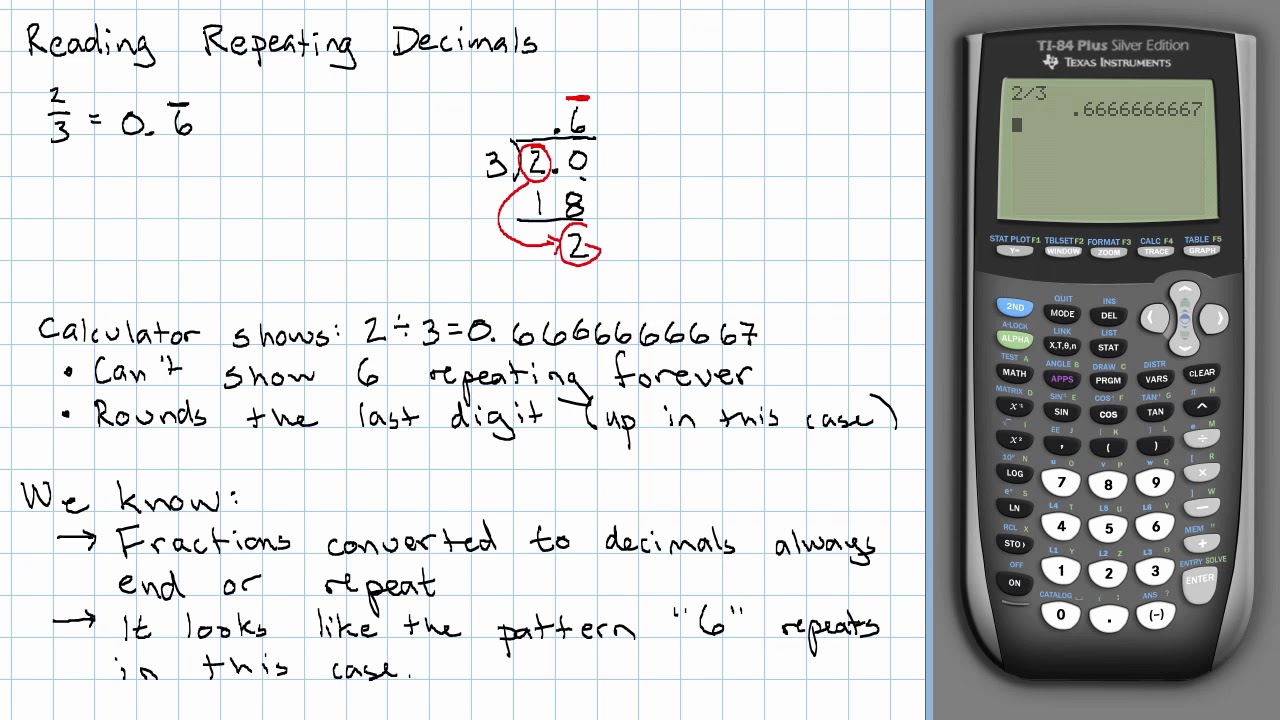 Reading Repeating Decimals
2/3 = 0.6̅
.6̅
3)2.0
18
2
Calculator shows: 2÷3=0.6666666667
• Can't show 6 repeating forever
• Rounds the last digit (up in this case)
We know:
→ Fractions converted to decimals always
end or repeat
→ It looks like the pattern "6" repeats
in this case.
TI-84 Plus Silver Edition
TEXAS INSTRUMENTS
2/3
.6666666667
STAT PLOT F1 TBLSET F2 FORMAT F3 CALC F4 TABLE F5
Y= WINDOW ZOOM TRACE GRAPH
QUIT INS
2ND MODE DEL
A-LOCK LINK LIST
ALPHA X,T,θ,n STAT
TEST A ANGLE B DRAW C DISTR
MATH APPS PRGM VARS CLEAR
MATRIX D SIN⁻¹ E COS⁻¹ F TAN⁻¹ G π H
SIN COS TAN ^
I EE J { K } L e M
x² , ( ) ÷
10ˣ N u O v P w Q [ R
LOG 7 8 9 ×
eˣ S L4 T L5 U L6 V ] W
LN 4 5 6 −
RCL X L1 Y L2 Z L3 θ MEM "
STO› 1 2 3 +
OFF CATALOG : ANS ? ENTRY SOLVE
ON 0 . (-) ENTER